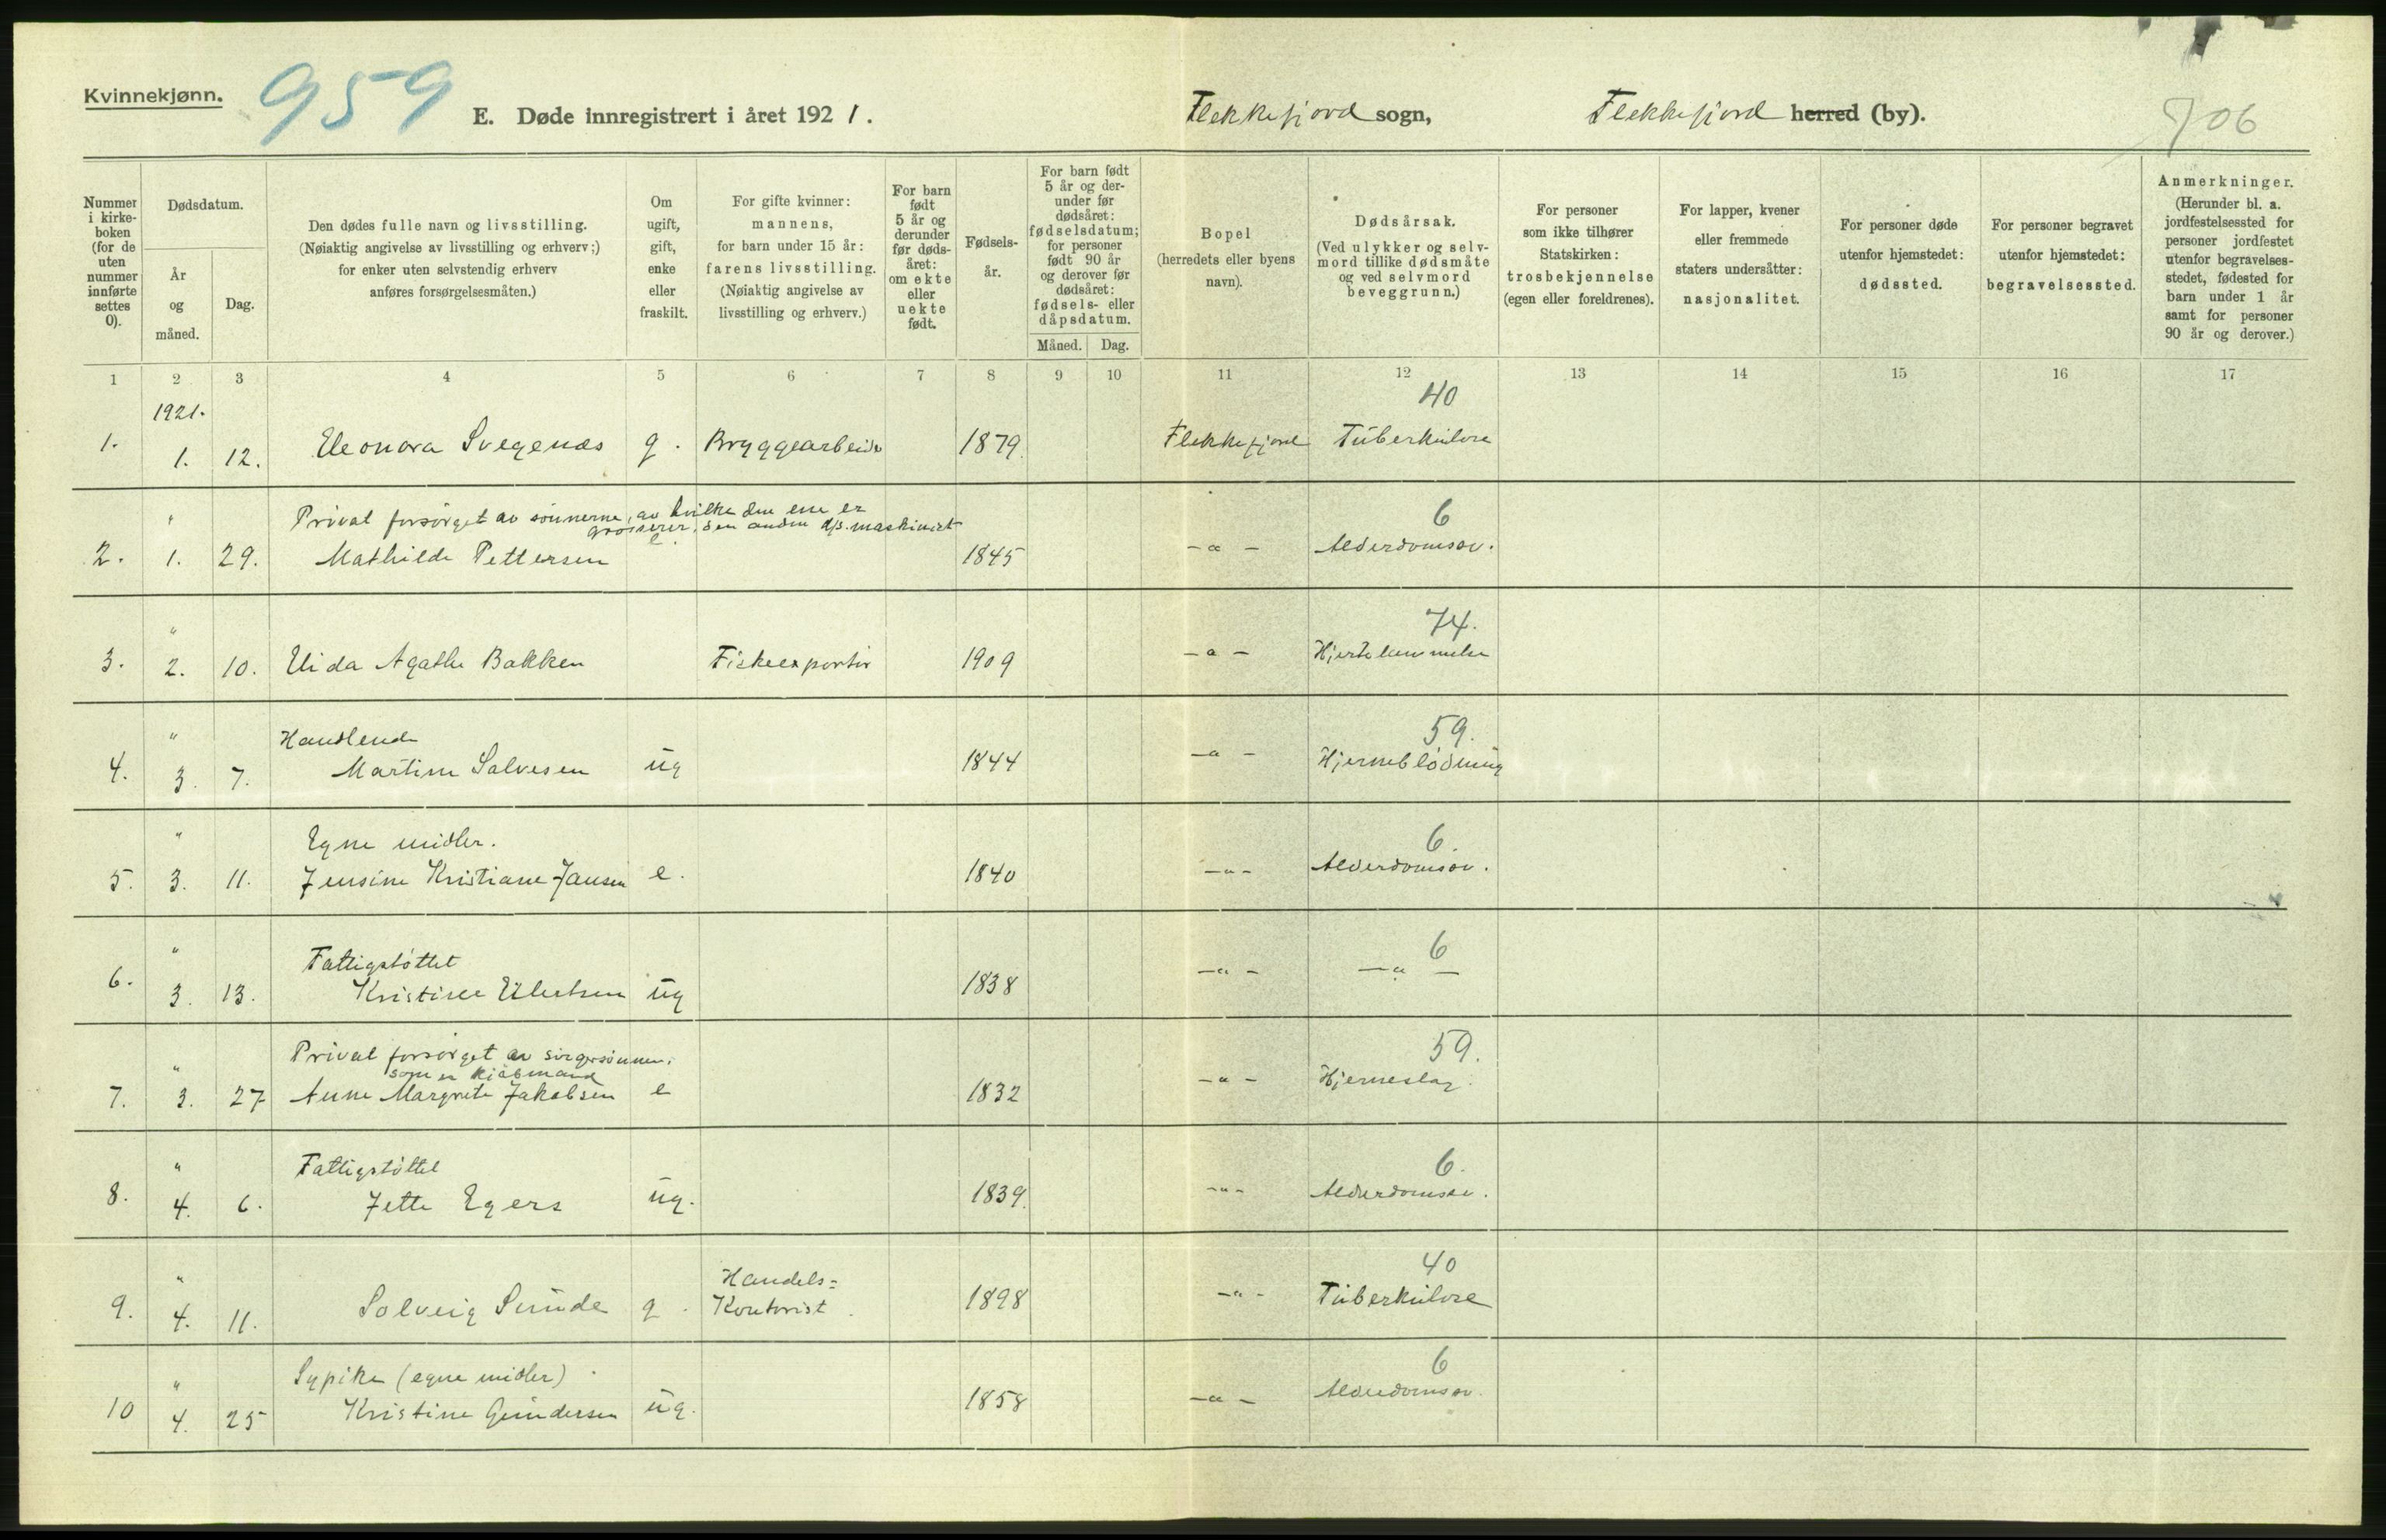 Kvinnekjønn.
959
E. Døde innregistrert i året 1921.
Flekkefjord sogn,
Flekkefjord herred (by).
706
Nummer i kirke-boken (for de uten nummer innførte settes 0).
Dødsdatum.
År og måned.
Dag.
Den dødes fulle navn og livsstilling.
(Nøiaktig angivelse av livsstilling og erhverv;)
for enker uten selvstendig erhverv
anføres forsørgelsesmåten.)
Om ugift, gift, enke eller fraskilt.
For gifte kvinner:
mannens,
for barn under 15 år:
farens livsstilling.
(Nøiaktig angivelse av
livsstilling og erhverv.)
For barn født 5 år og derunder før døds-året: om ekte eller uekte født.
Fødsels-år.
For barn født 5 år og der-under før dødsåret: fødselsdatum; for personer født 90 år og derover før dødsåret: fødsels- eller dåpsdatum.
Måned. Dag.
Bopel
(herredets eller byens
navn).
Dødsårsak.
(Ved ulykker og selv-
mord tillike dødsmåte
og ved selvmord
beveggrunn.)
For personer
som ikke tilhører
Statskirken:
trosbekjennelse
(egen eller foreldrenes).
For lapper, kvener
eller fremmede
staters undersåtter:
nasjonalitet.
For personer døde
utenfor hjemstedet:
dødssted.
For personer begravet
utenfor hjemstedet:
begravelsessted.
Anmerkninger.
(Herunder bl. a.
jordfestelsessted for
personer jordfestet
utenfor begravelses-
stedet, fødested for
barn under 1 år
samt for personer
90 år og derover.)
1 2 3 4 5 6 7 8 9 10 11 12 13 14 15 16 17
1921.
40
1. 1. 12. Eleonora Svegenæs g. Bryggearbeider 1879. Flekkefjord Tuberkulose
" Privat forsørget av sønnerne, av hvilke den ene er
grosserer, den anden d/s. maskinist
6
2. 1. 29. Mathilde Pettersen e. 1845 -"- Alderdomsv.
" 74.
3. 2. 10. Elida Agathe Bakken Fiskeexportør 1909 -"- Hjertelammelse
" Handlende 59.
4. 3. 7. Martine Salvesen ug 1844 -"- Hjerneblødning
" Egne midler. 6.
5. 3. 11. Jensine Kristiane Jansen e. 1840 -"- Alderdomsv.
" Fattigstøttet 6
6. 3. 13. Kristine Eilertsen ug 1838 -"- -"-
" Privat forsørget av svigersønnen,
som er kjøbmand 59.
7. 3. 27 Anne Margrete Jakobsen e 1832 -"- Hjerneslag.
" Fattigstøttet 6.
8. 4. 6. Jette Egers ug. 1839. -"- Alderdomsv.
" Handels= 40
9. 4. 11. Solveig Sunde g. Kontorist. 1898 -"- Tuberkulose
" Sypike (egne midler) 6
10 4. 25 Kristine Gundersen ug. 1858 -"- Alderdomsv.